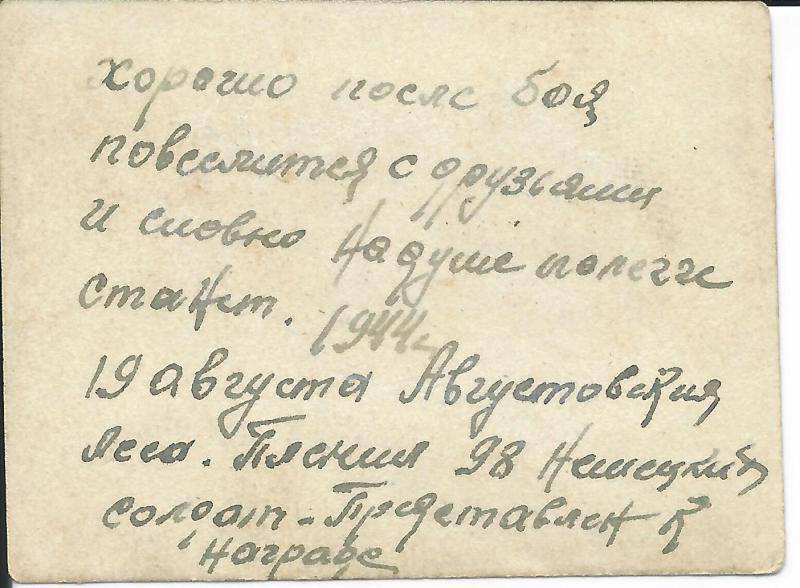 хорошо после боя
повеселится с друзьями
и словно на душе полегче
станет. 1944г.
19 августа Августовския
леса. Пленил 98 Немецких
солдат - Представлен к
награде